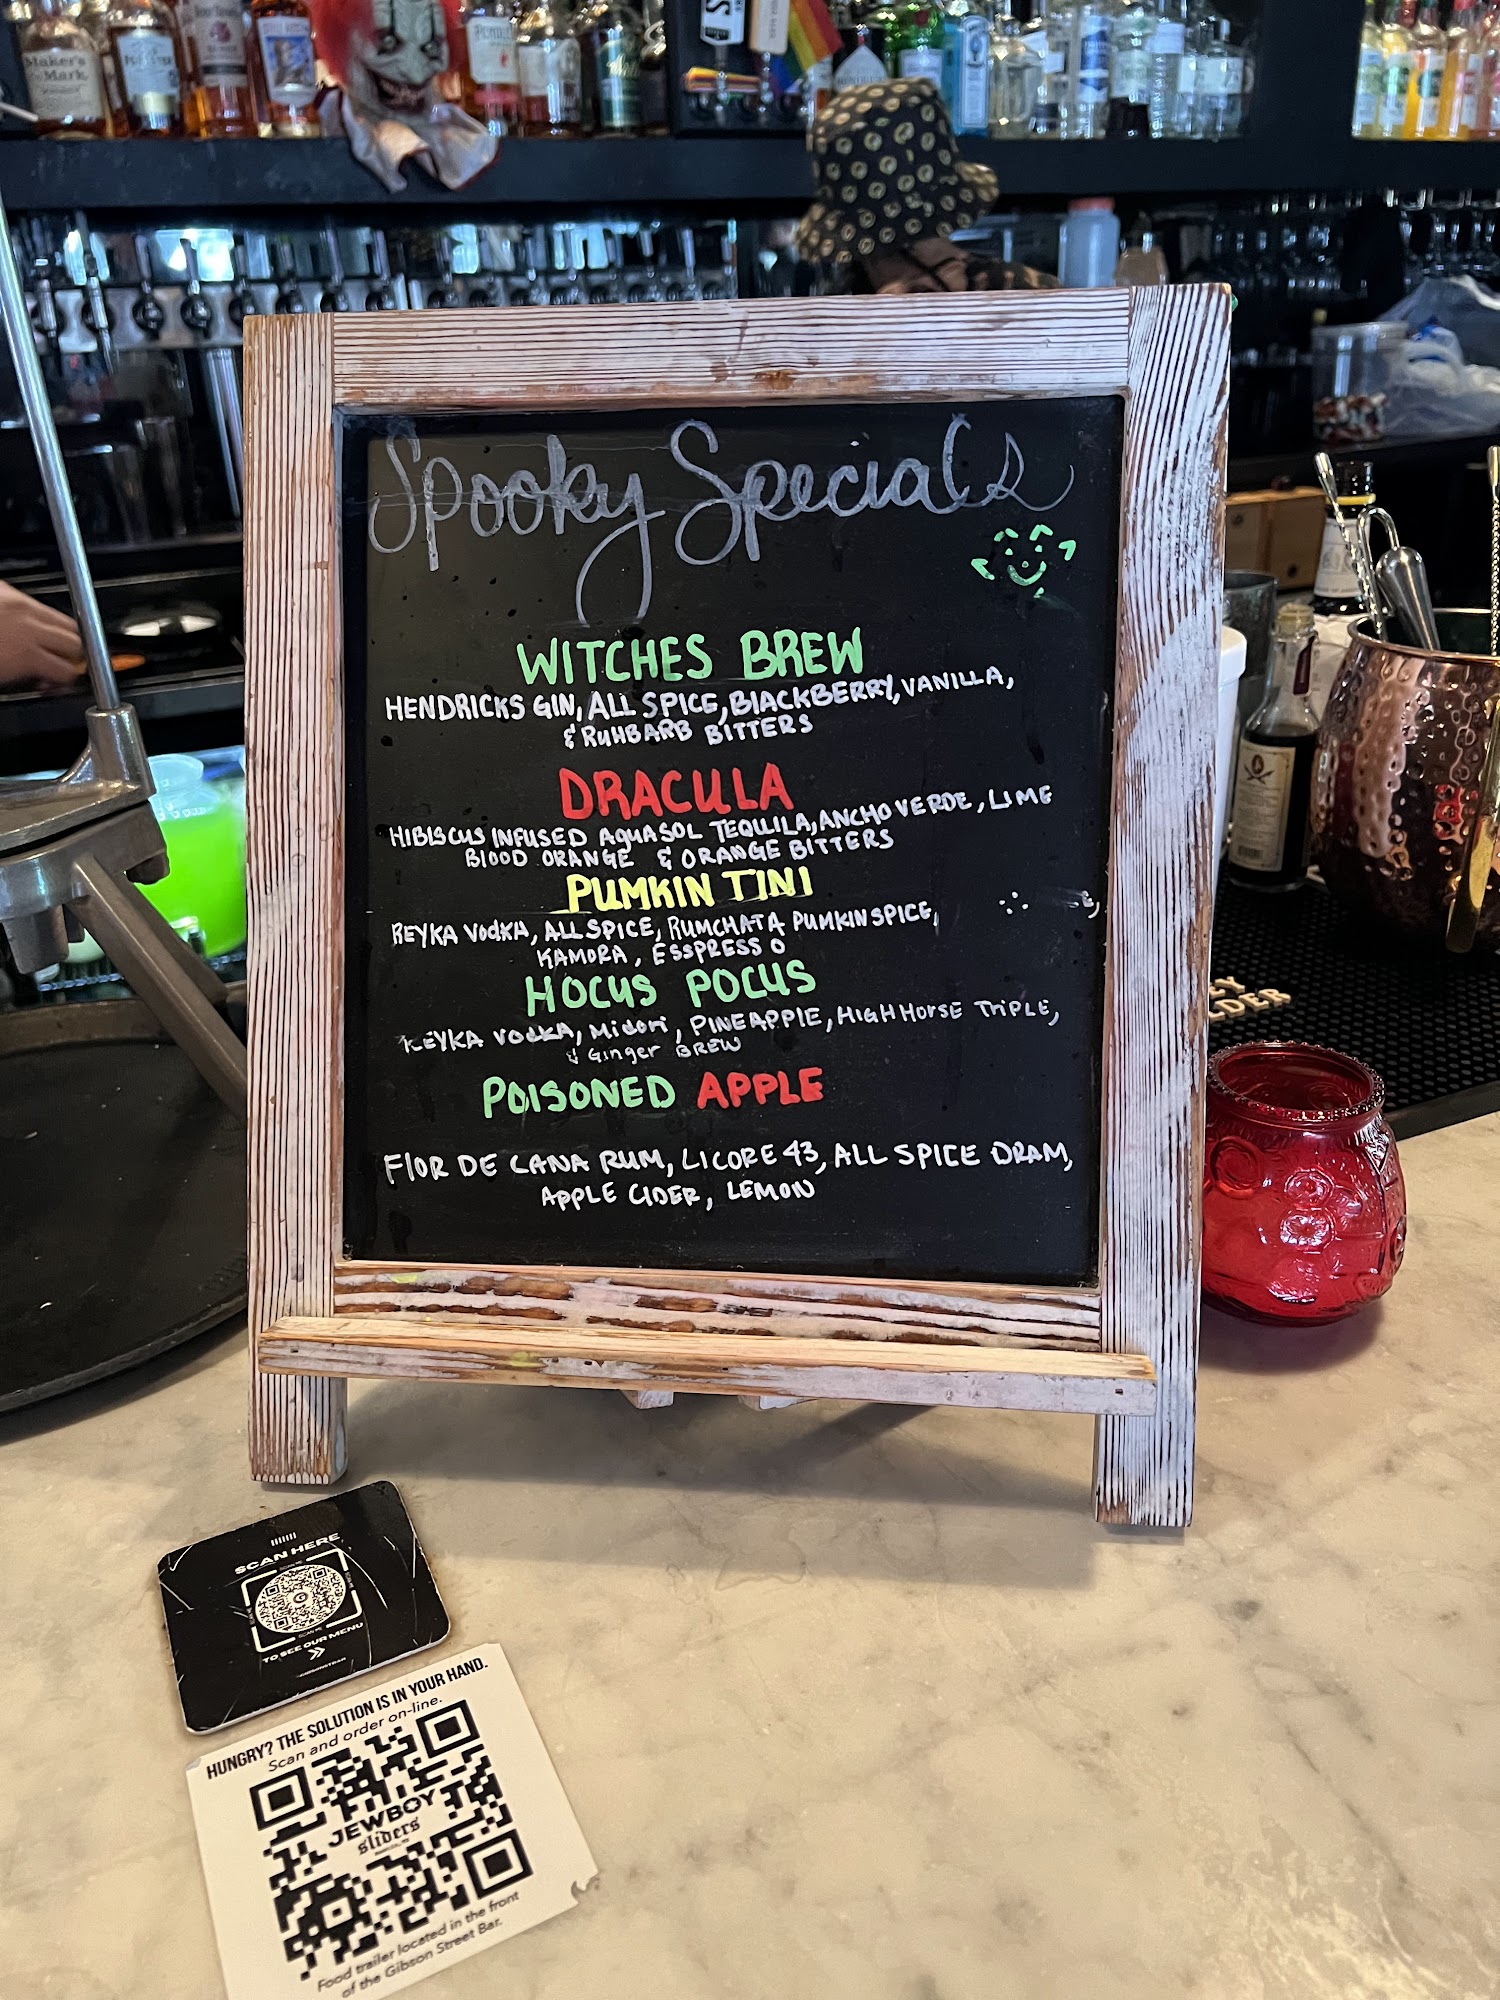 Maker's
Mark
Spooky Specials
WITCHES BREW
HENDRICKS GIN, ALL SPICE, BLACKBERRY, VANILLA,
& RUHBARB BITTERS
DRACULA
HIBISCUS INFUSED AQUASOL TEQUILA, ANCHO VERDE, LIME
BLOOD ORANGE & ORANGE BITTERS
PUMKIN TINI
REYKA VODKA, ALL SPICE, RUMCHATA PUMKIN SPICE,
KAMORA, ESSPRESSO
HOCUS POCUS
REYKA VODKA, Midori, PINEAPPLE, HIGH HORSE TRIPLE,
& Ginger BREW
POISONED APPLE
FlOR DE CANA RUM, LICORE 43, ALL SPICE DRAM,
APPLE CIDER, LEMON
SCAN HERE
SCAN ME
SCAN ME
TO SEE OUR MENU
HUNGRY? THE SOLUTION IS IN YOUR HAND.
Scan and order on-line.
JEWBOY
sliders
Food trailer located in the front
of the Gibson Street Bar.